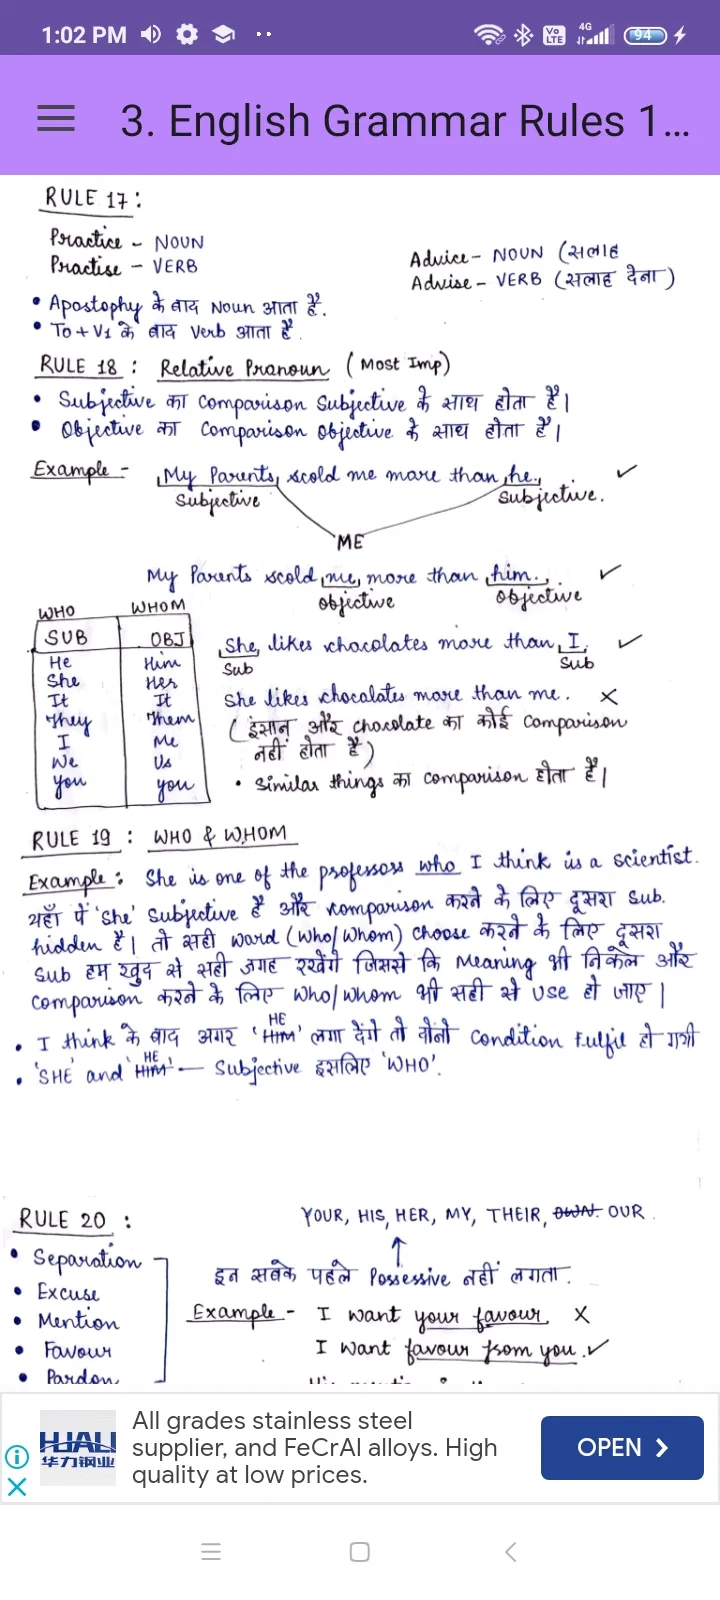 1:02 PM
4G
Vo LTE
94
3. English Grammar Rules 1...
RULE 17:
Practice - NOUN
Practise - VERB
Advice - NOUN (सलाह
Advise - VERB (सलाह देना)
• Apostophy के बाद Noun आता है.
• To + V1 के बाद Verb आता है.
RULE 18 : Relative Pronoun (Most Imp)
• Subjective का comparison Subjective के साथ होता है।
• Objective का comparison objective के साथ होता है।
Example - My Parents scold me more than he. ✓
Subjective Subjective.
ME
My Parents scold me more than him. ✓
objective objective
WHO WHOM
SUB OBJ
He Him
She Her
It It
They Them
I Me
We Us
you you
She likes chocolates more than I. ✓
Sub Sub
She likes chocolates more than me. ×
(इंसान और chocolate का कोई comparison
नहीं होता है)
• Similar things का comparison होता है।
RULE 19 : WHO & WHOM
Example: She is one of the professors who I think is a scientist.
यहाँ पे 'She' Subjective है और comparison करने के लिए दूसरा Sub.
hidden है। तो सही word (who/whom) choose करने के लिए दूसरा
Sub हम खुद से सही जगह रखेंगे जिससे कि Meaning भी निकले और
comparison करने के लिए who/whom भी सही से use हो जाए।
• I think के बाद अगर 'HIM HE' लगा देंगे तो दोनो condition fulfil हो गयी
• 'SHE' and 'HIM HE' — Subjective इसलिए 'WHO'.
RULE 20 :
YOUR, HIS, HER, MY, THEIR, OWN. OUR.
• Separation
• Excuse
• Mention
• Favour
• Pardon
इन सबके पहले Possessive नहीं लगता.
Example - I want your favour ×
I want favour from you. ✓
HJALI
华力钢业
All grades stainless steel
supplier, and FeCrAl alloys. High
quality at low prices.
OPEN